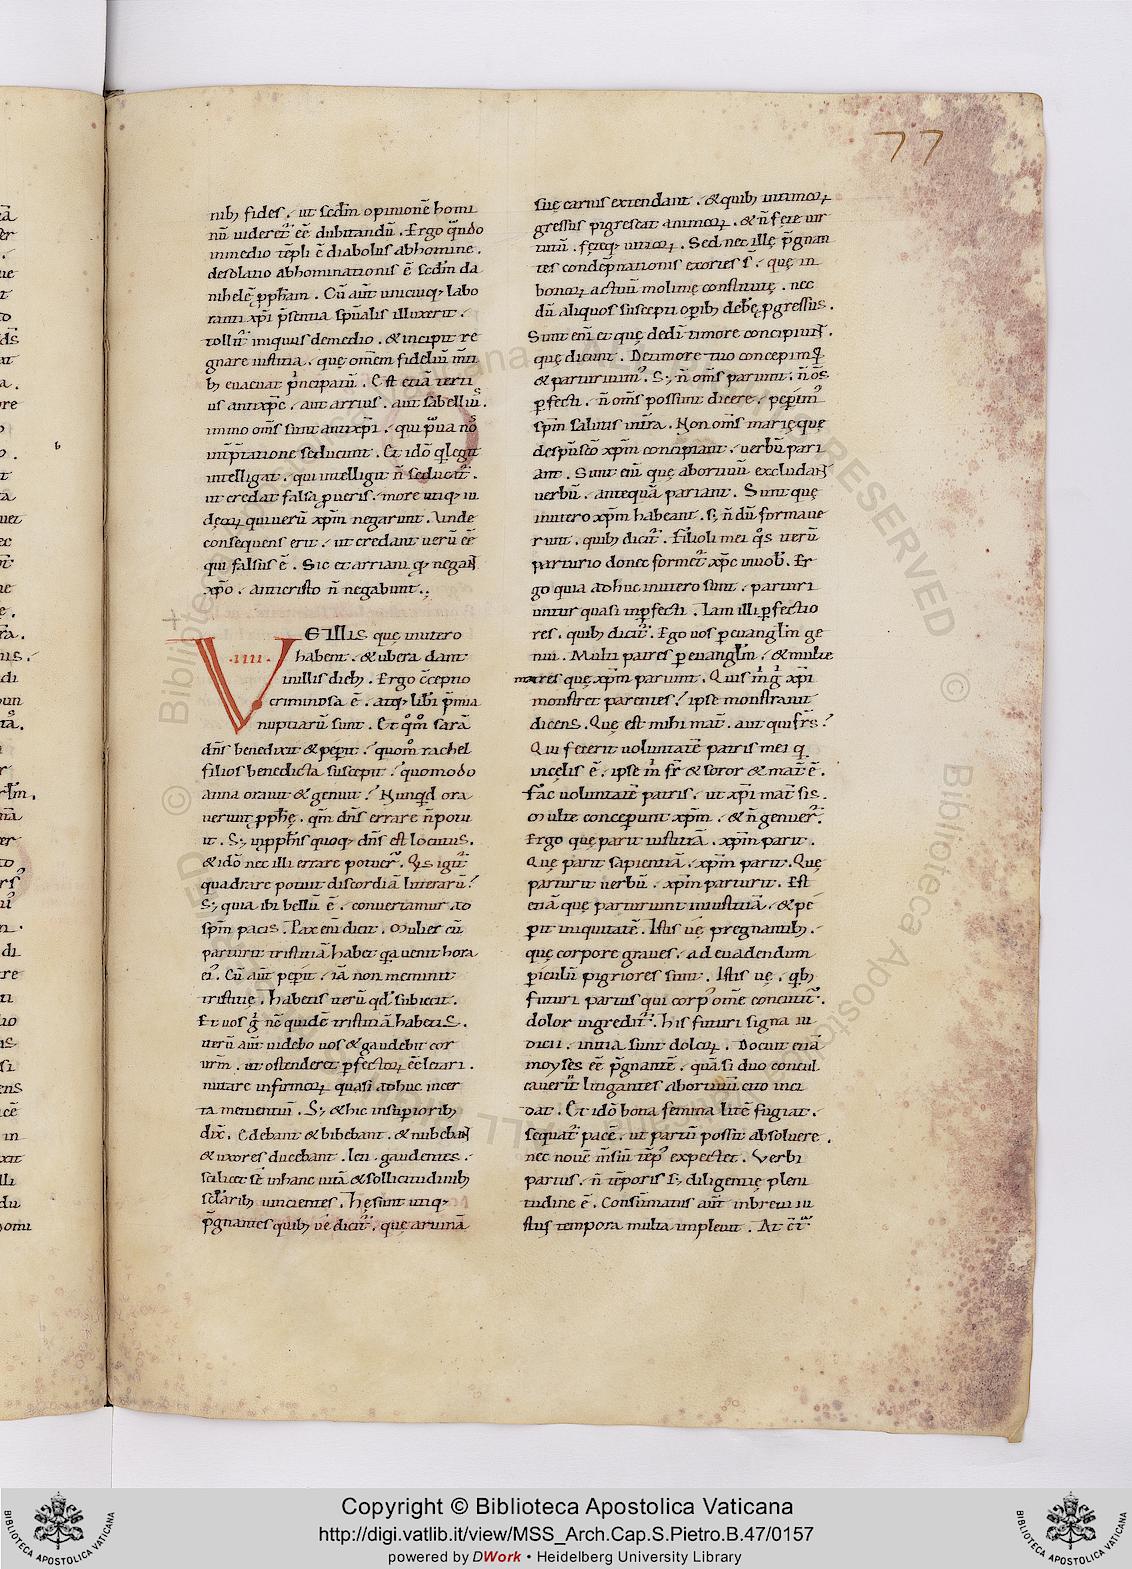 77
nibꝫ fides . ut scdm̄ opinionē homi
nū uideret᷑ eē dubitandū . Ergo qn̄do
inmedio tēpli ē diabolus abhomine .
desolatio abhominationis ē scdm̄ da
nihelē ꝓph̄am . Cū aut̄ unicuiqꝫ labo
ranti xp̄i p̄sentia spūalis illuxerit .
tollit᷑ iniquus demedio . & incipit re
gnare iustitia . quę omēm fidelium̄ m̄ti
bꝫ euacuat p̄ncipatū . Est etiā terti
us antixp̄c . aut arrius . aut sabelliū .
immo om̄s sunt antixp̄i . qui p̄ua nō
int̄p̄tatione seducunt . Et idō q̇ legit
intelligat . qui intelligit n̄ seducat᷑ .
ut credat falsa ꝓ ueris . more utiqꝫ iu
dęoꝝ qui uerū xp̄m negarunt . Unde
consequens erit . ut credant uerū eē
qui falsus ē . Sic et arriani qꝫ negant
xp̄o . anticristo n̄ negabunt .
V ·IIII· E ILLIS quę inutero
habent . & ubera dant
inillis diebꝫ . Ergo c̄ceptio
criminosa ē . atqꝫ libri p̄mia
nuptiarū sunt . Et qm̊ sarā
dn̄s benedixit & peꝑit ? quom̊ rachel
filios benedicta suscepit ? quomodo
anna orauit & genuit ? Nunqd ora
uerunt ꝓph̄ę . qm̄ dn̄s errare n̄ potu
it . Sꝫ inꝓph̄is quoqꝫ dn̄s est locutus .
& idō nec illi errare potuer̄ . Qͥs igit᷑
quadrare potuit discordiā litterarū ?
Sꝫ quia ibi bellū ē . conuertamur ad
sp̄m pacis . Pax enī dicit . Mulier cū
parturit tristitiā habet quia uenit hora
ei᷒ . Cū aut̄ peꝑit . iā non meminit
tristitię . habetis uerū qd᷑ subiecit .
Et uos ġ nc̄ quidē tristitiā habetis .
iterū aut̄ uidebo uos & gaudebit cor
ur̄m . ut ostenderet ꝑfectoꝝ eē letari .
nutare infirmoꝝ quasi adhuc incer
ta metuentiū . Sꝫ & hic insuꝑioribꝫ
dix̄ . Edebant & bibebant . & nubebant
& uxores ducebant . leti . gaudentes .
scilicet sē inhanc uitā & sollicitudinibꝫ
sc̄laribꝫ uincientes . Hę sunt utiqꝫ
p̄gnantes quibꝫ uę dicit᷑ . quę aruinā
suę carnis extendant . & quibꝫ intimoꝝ
gressus pigrescat animoꝝ . & n̄ fęte uir
tutū . fęteqꝫ uitioꝝ . Sed nec illę p̄gnan
tes condēpnationis exortes s̄t . quę in
bonoꝝ actuū molimę constitutę . nec
dū aliquos suscepti oꝑibꝫ debitę ꝓgressus .
Sunt enī et quę dedī timore concipiunt .
quę dicunt . De timore tuo concepim᷒
& parturiuim᷒ . Sꝫ n̄ om̄s pariunt . n̄ om̄s
ꝑfecti . n̄ om̄s possunt dicere . peꝑim᷒
sp̄m salutis int̄ra . Non om̄s marię quę
desp̄uscō xp̄m concipiant . uerbū pari
ant . Sunt enī quę abortiuū excludant
uerbū . antequā pariant . Sunt quę
inutero xp̄m habeant . sꝫ n̄ dū formaue
runt . quibꝫ dicit᷑ . Filioli mei qͦs iterū
parturio donec formet᷑ xp̄c inuobꝫ . Er
go quia adhuc inutero sunt . parturi
untur quasi inꝑfecti . Iam illi ꝑfectio
res . quibꝫ dicit᷑ . Ego uos ꝑ euangl̄m ge
nui . Multi patres ꝑ euangl̄m . & multe
matres quę xp̄m pariunt . Quis m̄ ġ xp̄i
monstret parentes ? ipse monstrauit
dicens . Quę est mihi mat̄ . aut qui fr̄s ?
Qui fecerit uoluntatē patris mei q̇
incęlis ē . ipse m̄ fr̄ & soror & mat̄ ē .
Fac uoluntatē patris . ut xp̄i mat̄ sis .
Multe conceperunt xp̄m . & n̄ genuer̄ .
Ergo quę parit iustitiā . xp̄m parit .
Quę parit sapientiā . xp̄m parit . Quę
parturit uerbū . xp̄m parturit . Est
etiā quę parturiunt iniustitiā . & pe
ꝑit iniquitatē . Istis uę pregnantibꝫ .
quę corpore graues . ad euadendum
ꝑiculū pigriores sunt . Istis uę . qͥbꝫ
futuri partus qui corp᷒ om̄e concutit᷑ .
dolor ingredit᷑ . his futuri signa iu
dicii . initia sunt doloꝝ . Docuit etiā
moyses eē p̄gnantē . quā si duo concul
cauerit̄ litigantes abortiuū cito inci
dat . Et idō bona femina litē fugiat .
sequat᷑ pacē . ut partū possit absoluere .
nec nouē m̄siū tēp᷒ expectet . Verbi
partus . n̄ tēporis sꝫ diligentię pleni
tudine ē . Consūmatus aut̄ inbreui iu
stus tempora multa impleuit . At
Copyright © Biblioteca Apostolica Vaticana
http://digi.vatlib.it/view/MSS_Arch.Cap.S.Pietro.B.47/0157
powered by DWork • Heidelberg University Library
BIBLIOTECA APOSTOLICA VATICANA
BIBLIOTECA APOSTOLICA VATICANA